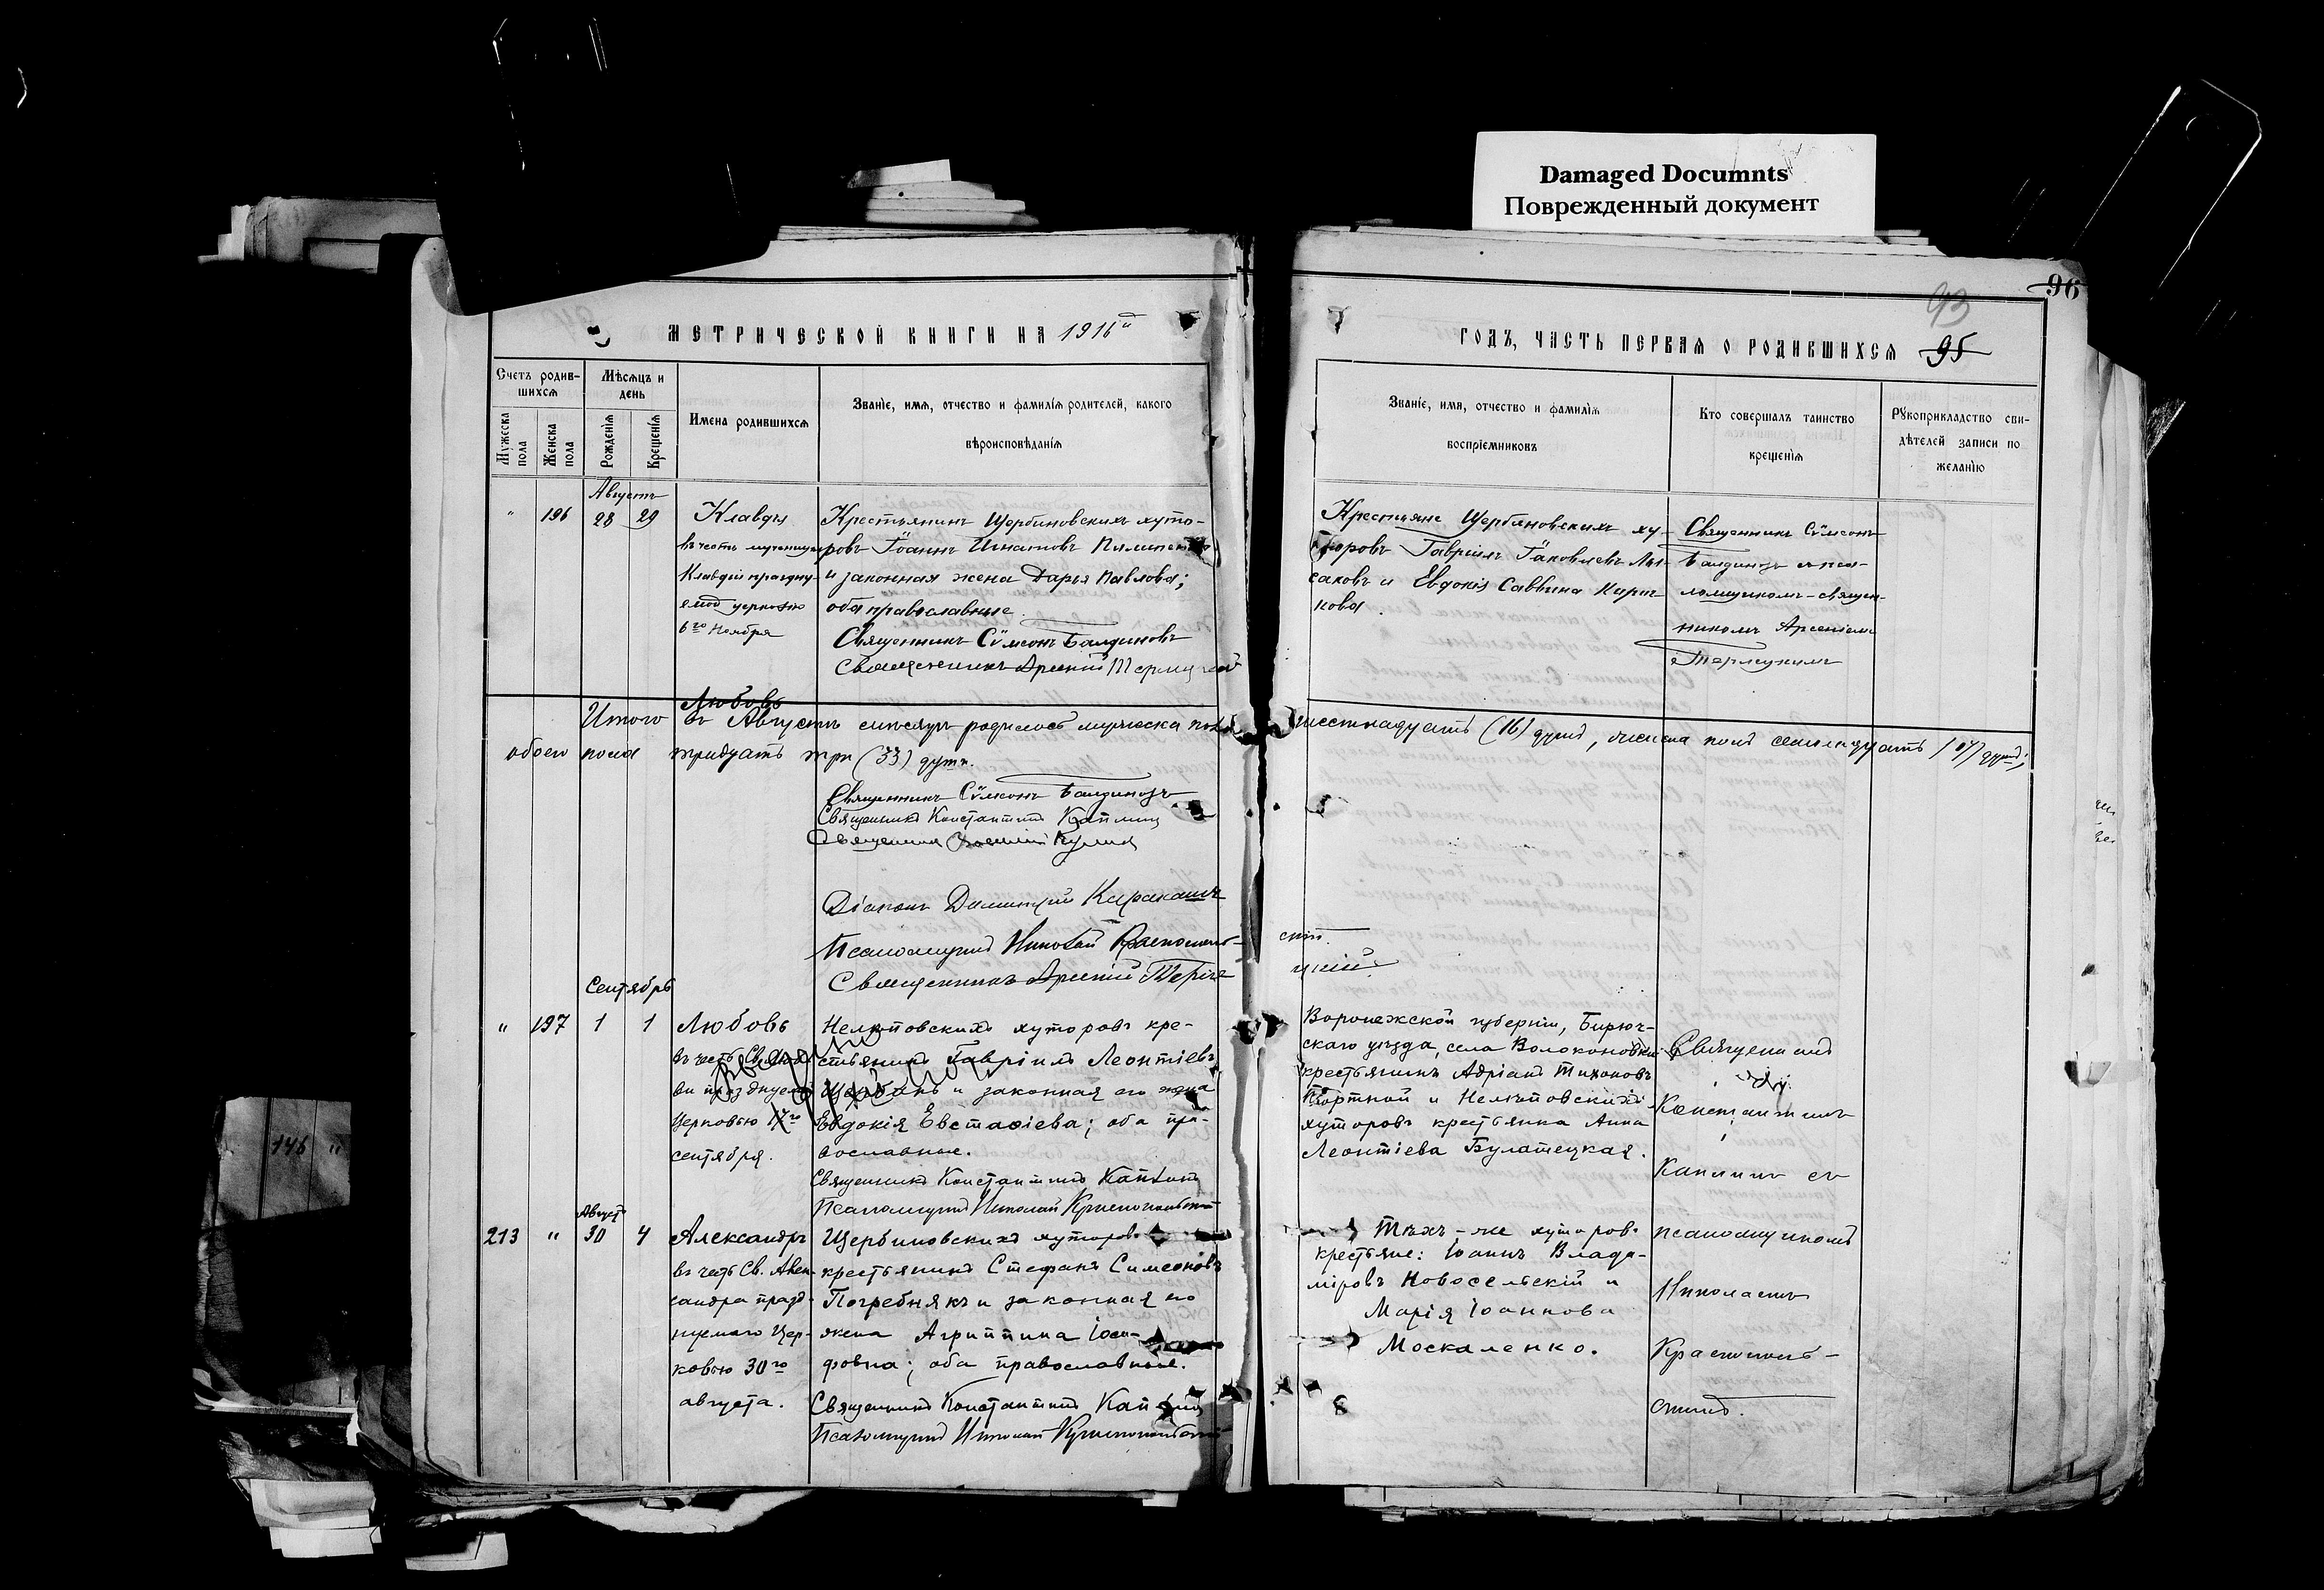 Damaged Documnts
Поврежденный документ
96
93
МЕТРИЧЕСКОЙ КНИГИ НА 1916й
ГОДЪ, ЧАСТЬ ПЕРВАЯ О РОДИВШИХСЯ 95
Счетъ родив-
шихся
Мужеска пола
Женска пола
Мѣсяцъ и
день
Рожденія
Крещенія
Имена родившихся
Званіе, имя, отчество и фамилія родителей, какого
вѣроисповѣданія
Званіе, имя, отчество и фамилія
воспріемниковъ
Кто совершалъ таинство
крещенія
Рукоприкладство сви-
дѣтелей записи по
желанію
Августъ
" 196 28 29
Клавдія
въ честь мученицы
Клавдіи праздну-
емой церковью
6го Ноября
Крестьянинъ Щербиновскихъ хуто-
ровъ Іоаннъ Игнатовъ
и законная жена Дарья Павлова;
оба православные.
Священникъ Сѵмеонъ Балдиновъ
Священникъ Арсеній
Крестьяне Щербиновскихъ ху-
торовъ Гавріилъ Іаковлевъ Лы-
саковъ и Евдокія Саввина
Священникъ Сѵмеонъ
Балдиновъ съ пса-
ломщикомъ-священ-
никомъ Арсеніемъ
Любовь
Итого въ Августѣ мѣсяцѣ родилось мужеска пола шестнадцать (16) душъ, женска пола семнадцать (17) душъ;
обоего пола тридцать три (33) душъ.
Священникъ Сѵмеонъ Балдиновъ
Священникъ Константинъ Каплинъ
Священникъ
Діаконъ Димитрій
Псаломщикъ Николай Краснополь-
скій.
Священникъ Арсеній
цкій.
Сентябрь
" 197 1 1
Любовь
въ честь Св. Любо-
ви празднуемой
Церковью 17го
сентября.
Нелюповскихъ хуторовъ кре-
стьянинъ Гавріилъ Леонтіевъ
Щербань и законная его жена
Евдокія Евстафіева; оба пра-
вославные.
Священникъ Константинъ Каплинъ
Псаломщикъ Николай Краснопольскій
Воронежской губерніи, Бирюч-
скаго уѣзда, села Волоконовки
крестьянинъ Адріанъ Тихоновъ
Портной и Нелюповскихъ
хуторовъ крестьянка Анна
Леонтіева Булатецкая.
Священникъ
Константинъ
Каплинъ съ
псаломщикомъ
Николаемъ
Краснополь-
скимъ.
Август
213 " 30 4
Александръ
въ честь Св. Алек-
сандра празд-
нуемаго Цер-
ковью 30го
августа.
Щербиновскихъ хуторовъ
крестьянинъ Стефанъ Симеоновъ
Погребнякъ и законная его
жена Агриппина Іоси-
фовна; оба православные.
Священникъ Константинъ Каплинъ
Псаломщикъ Николай Краснопольскій
Тѣхъ-же хуторовъ
крестьяне: Іоаннъ Влади-
міровъ Новосельскій и
Марія Іоаннова
Москаленко.
146 "